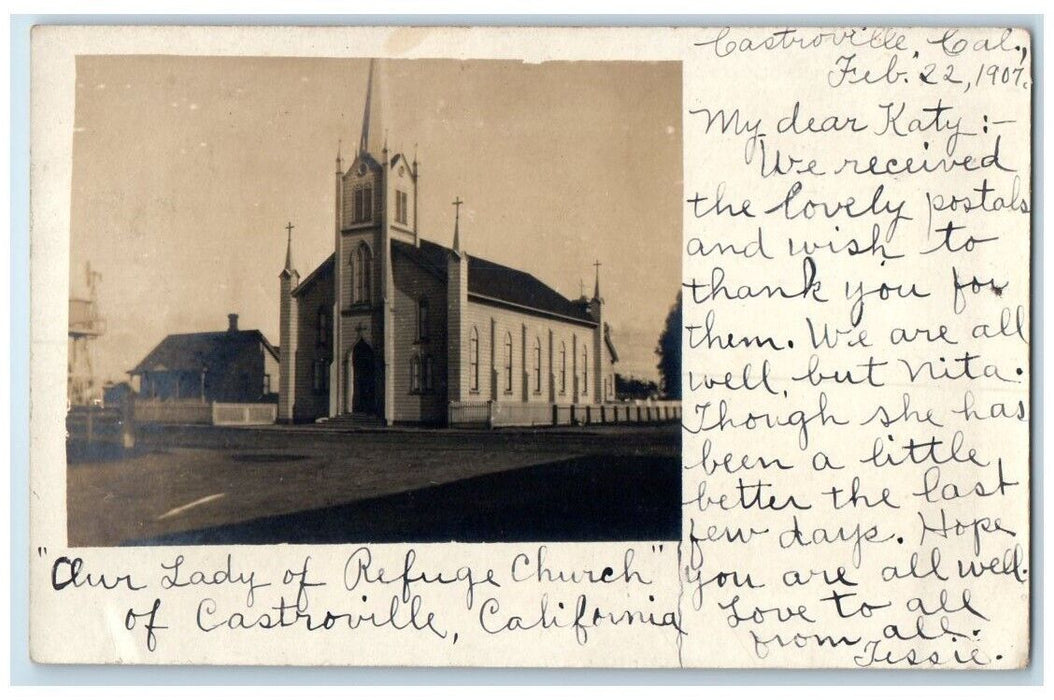 Castroville, Cal.,
Feb. 22, 1907.
My dear Katy:-
We received
the lovely postals
and wish to
thank you for
them. We are all
well, but Nita.
Though she has
been a little
better the last
few days. Hope
you are all well.
Love to all
from all.
Tessie.
"Our Lady of Refuge Church"
of Castroville, California